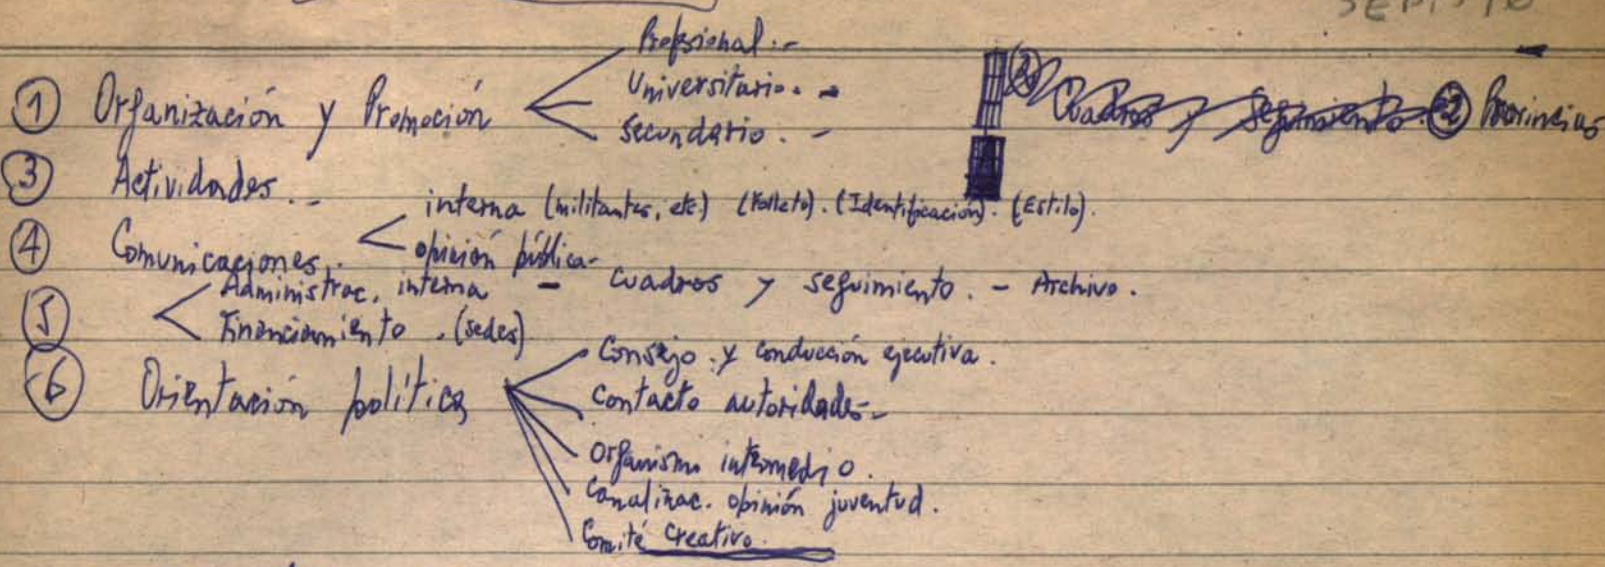 Profesional.-
Universitario. -
Secundario. -
① Organización y Promoción
② Cuadros y seguimiento. ② Provincias
③ Actividades.-
④ Comunicaciones.
interna (militantes, etc) (Folleto). (Identificación). (Estilo).
opinión pública-
⑤ Administrac. interna - cuadros y seguimiento. - Archivo.
Financiamiento. (sedes)
⑥ Orientación política
Consejo y conducción ejecutiva.
Contacto autoridades-
Organismo intermedio.
Canalizac. opinión juventud.
Comité creativo.